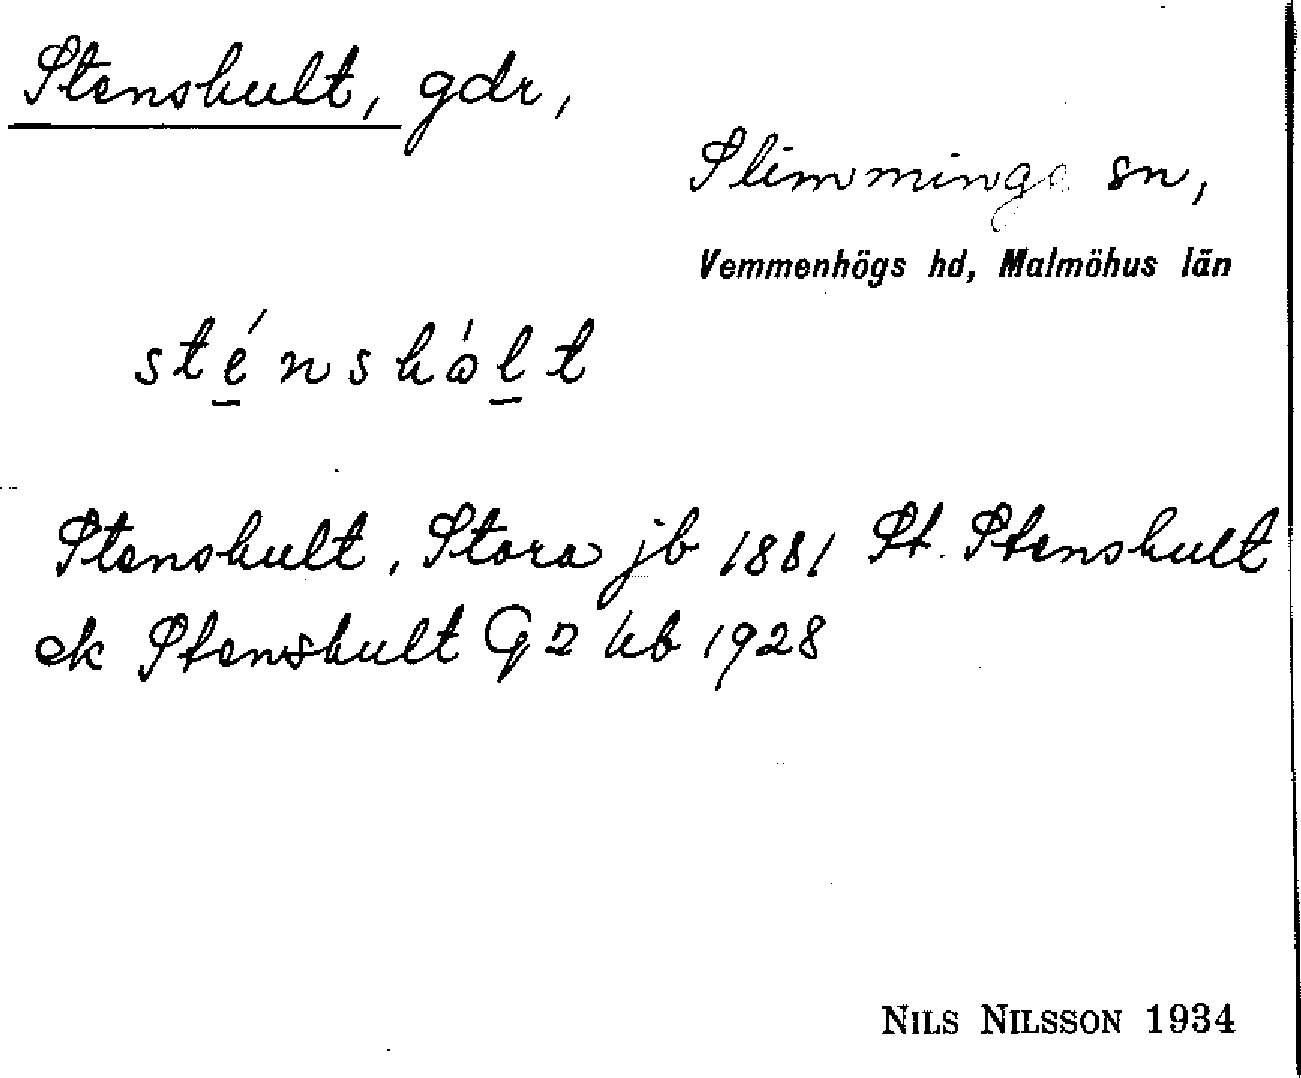 Stenshult, gdr,
Slimminge sn,
Vemmenhögs hd, Malmöhus län
sténshòlt
Stenshult, Stora jb 1881 St. Stenshult
ek Stenshult G2 kb 1928
NILS NILSSON 1934